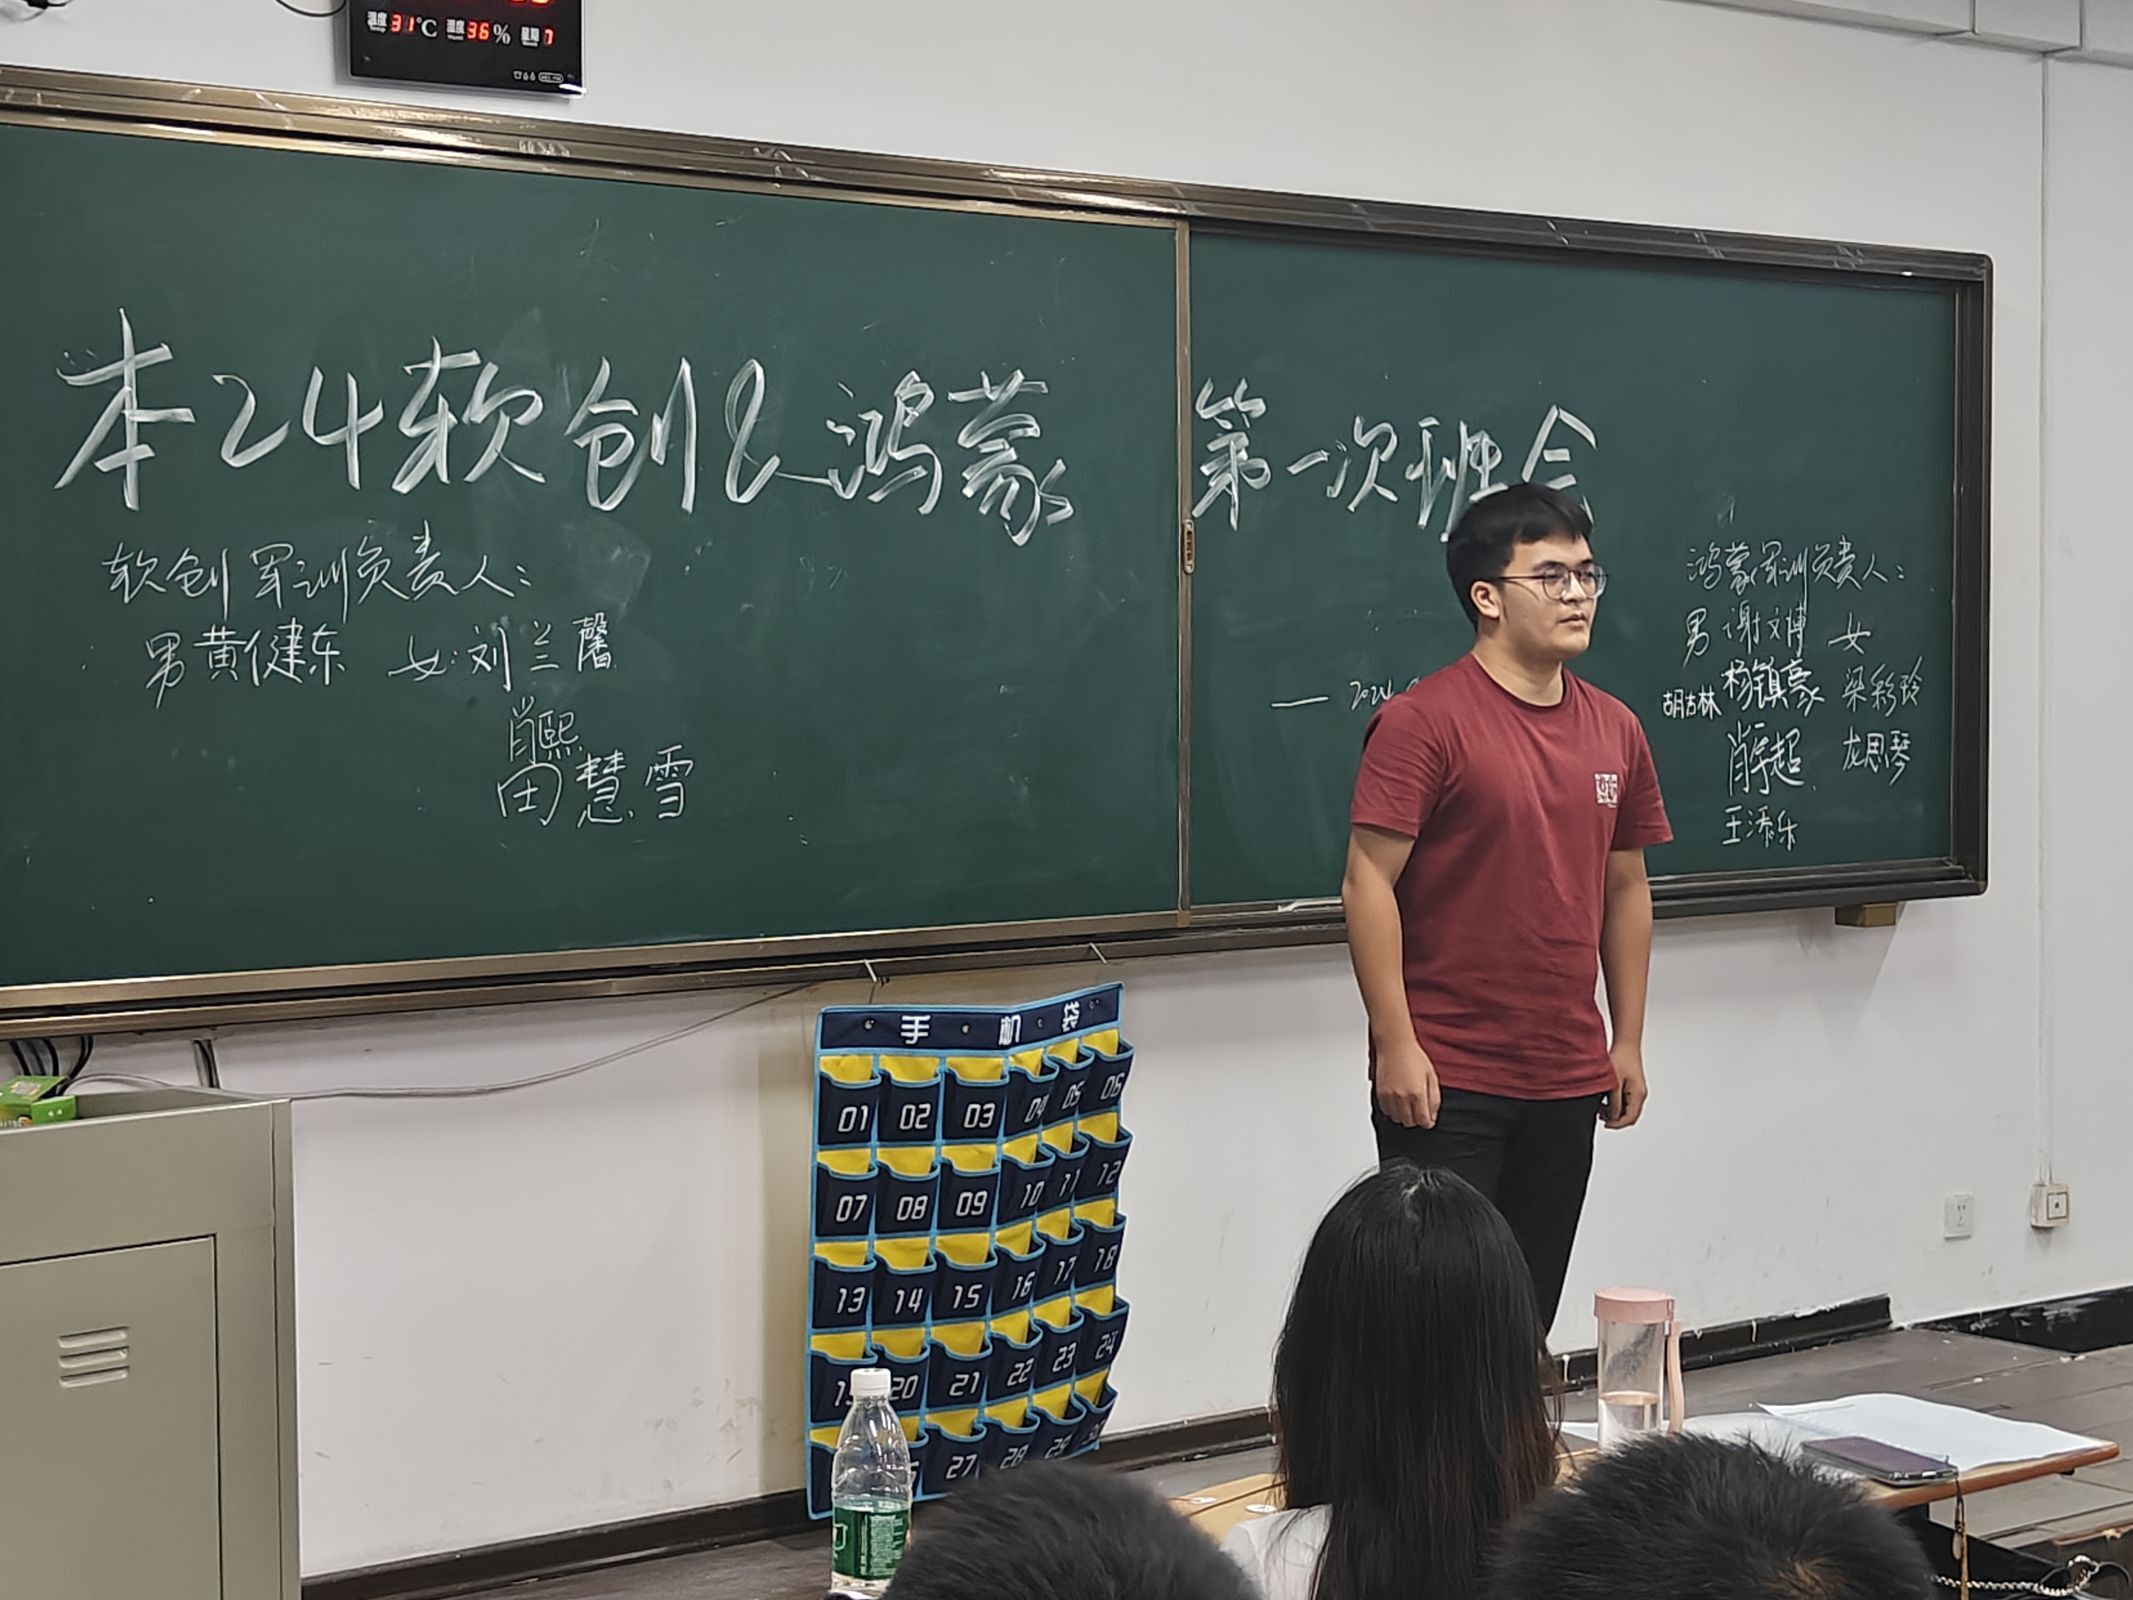 温度 31℃ 湿度 36% 星期 7
本24软创&鸿蒙 第一次班会
软创军训负责人:
男黄健东 女:刘兰馨
肖熙
田慧雪
— 2024
鸿蒙军训负责人:
男 谢文博 女
胡古林 杨镇豪 梁彩玲
肖宇超 龙思琴
王添乐
手机袋
01 02 03 04 05 06
07 08 09 10 11 12
13 14 15 16 17 18
19 20 21 22 23 24
27 28 29 30